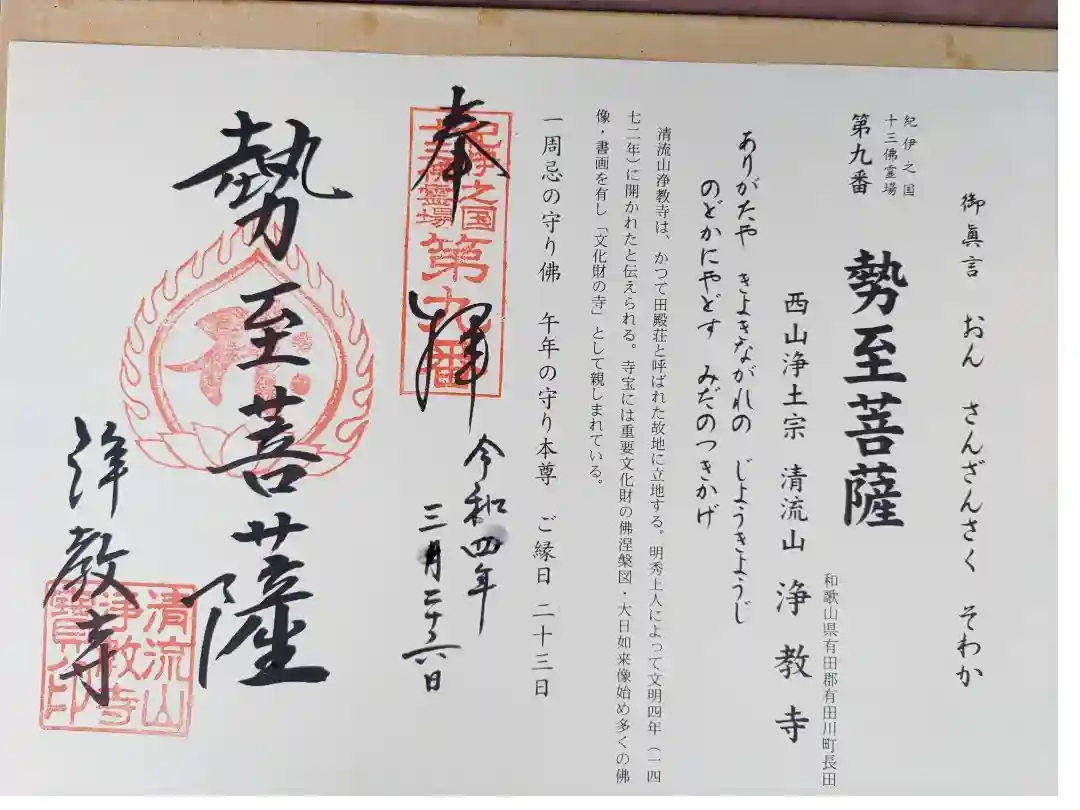 御眞言 おん さんざんさく そわか
紀伊之国
十三佛霊場
第九番 勢至菩薩
和歌山県有田郡有田川町長田
西山浄土宗 清流山 浄教寺
ありがたや きよきながれの じようきようじ
のどかにやどす みだのつきかげ
清流山浄教寺は、かつて田殿荘と呼ばれた故地に立地する。明秀上人によって文明四年(一四
七二年)に開かれたと伝えられる。寺宝には重要文化財の佛涅槃図・大日如来像始め多くの佛
像・書画を有し「文化財の寺」として親しまれている。
一周忌の守り佛 午年の守り本尊 ご縁日 二十三日
奉拝
紀伊之国
十三佛霊場
第九番
令和四年
三月二十六日
勢至菩薩
浄教寺
清流山
浄教寺
寶印